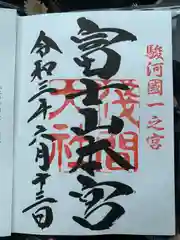 駿河國一之宮
富士山本宮
淺間大社
令和二年六月十三日